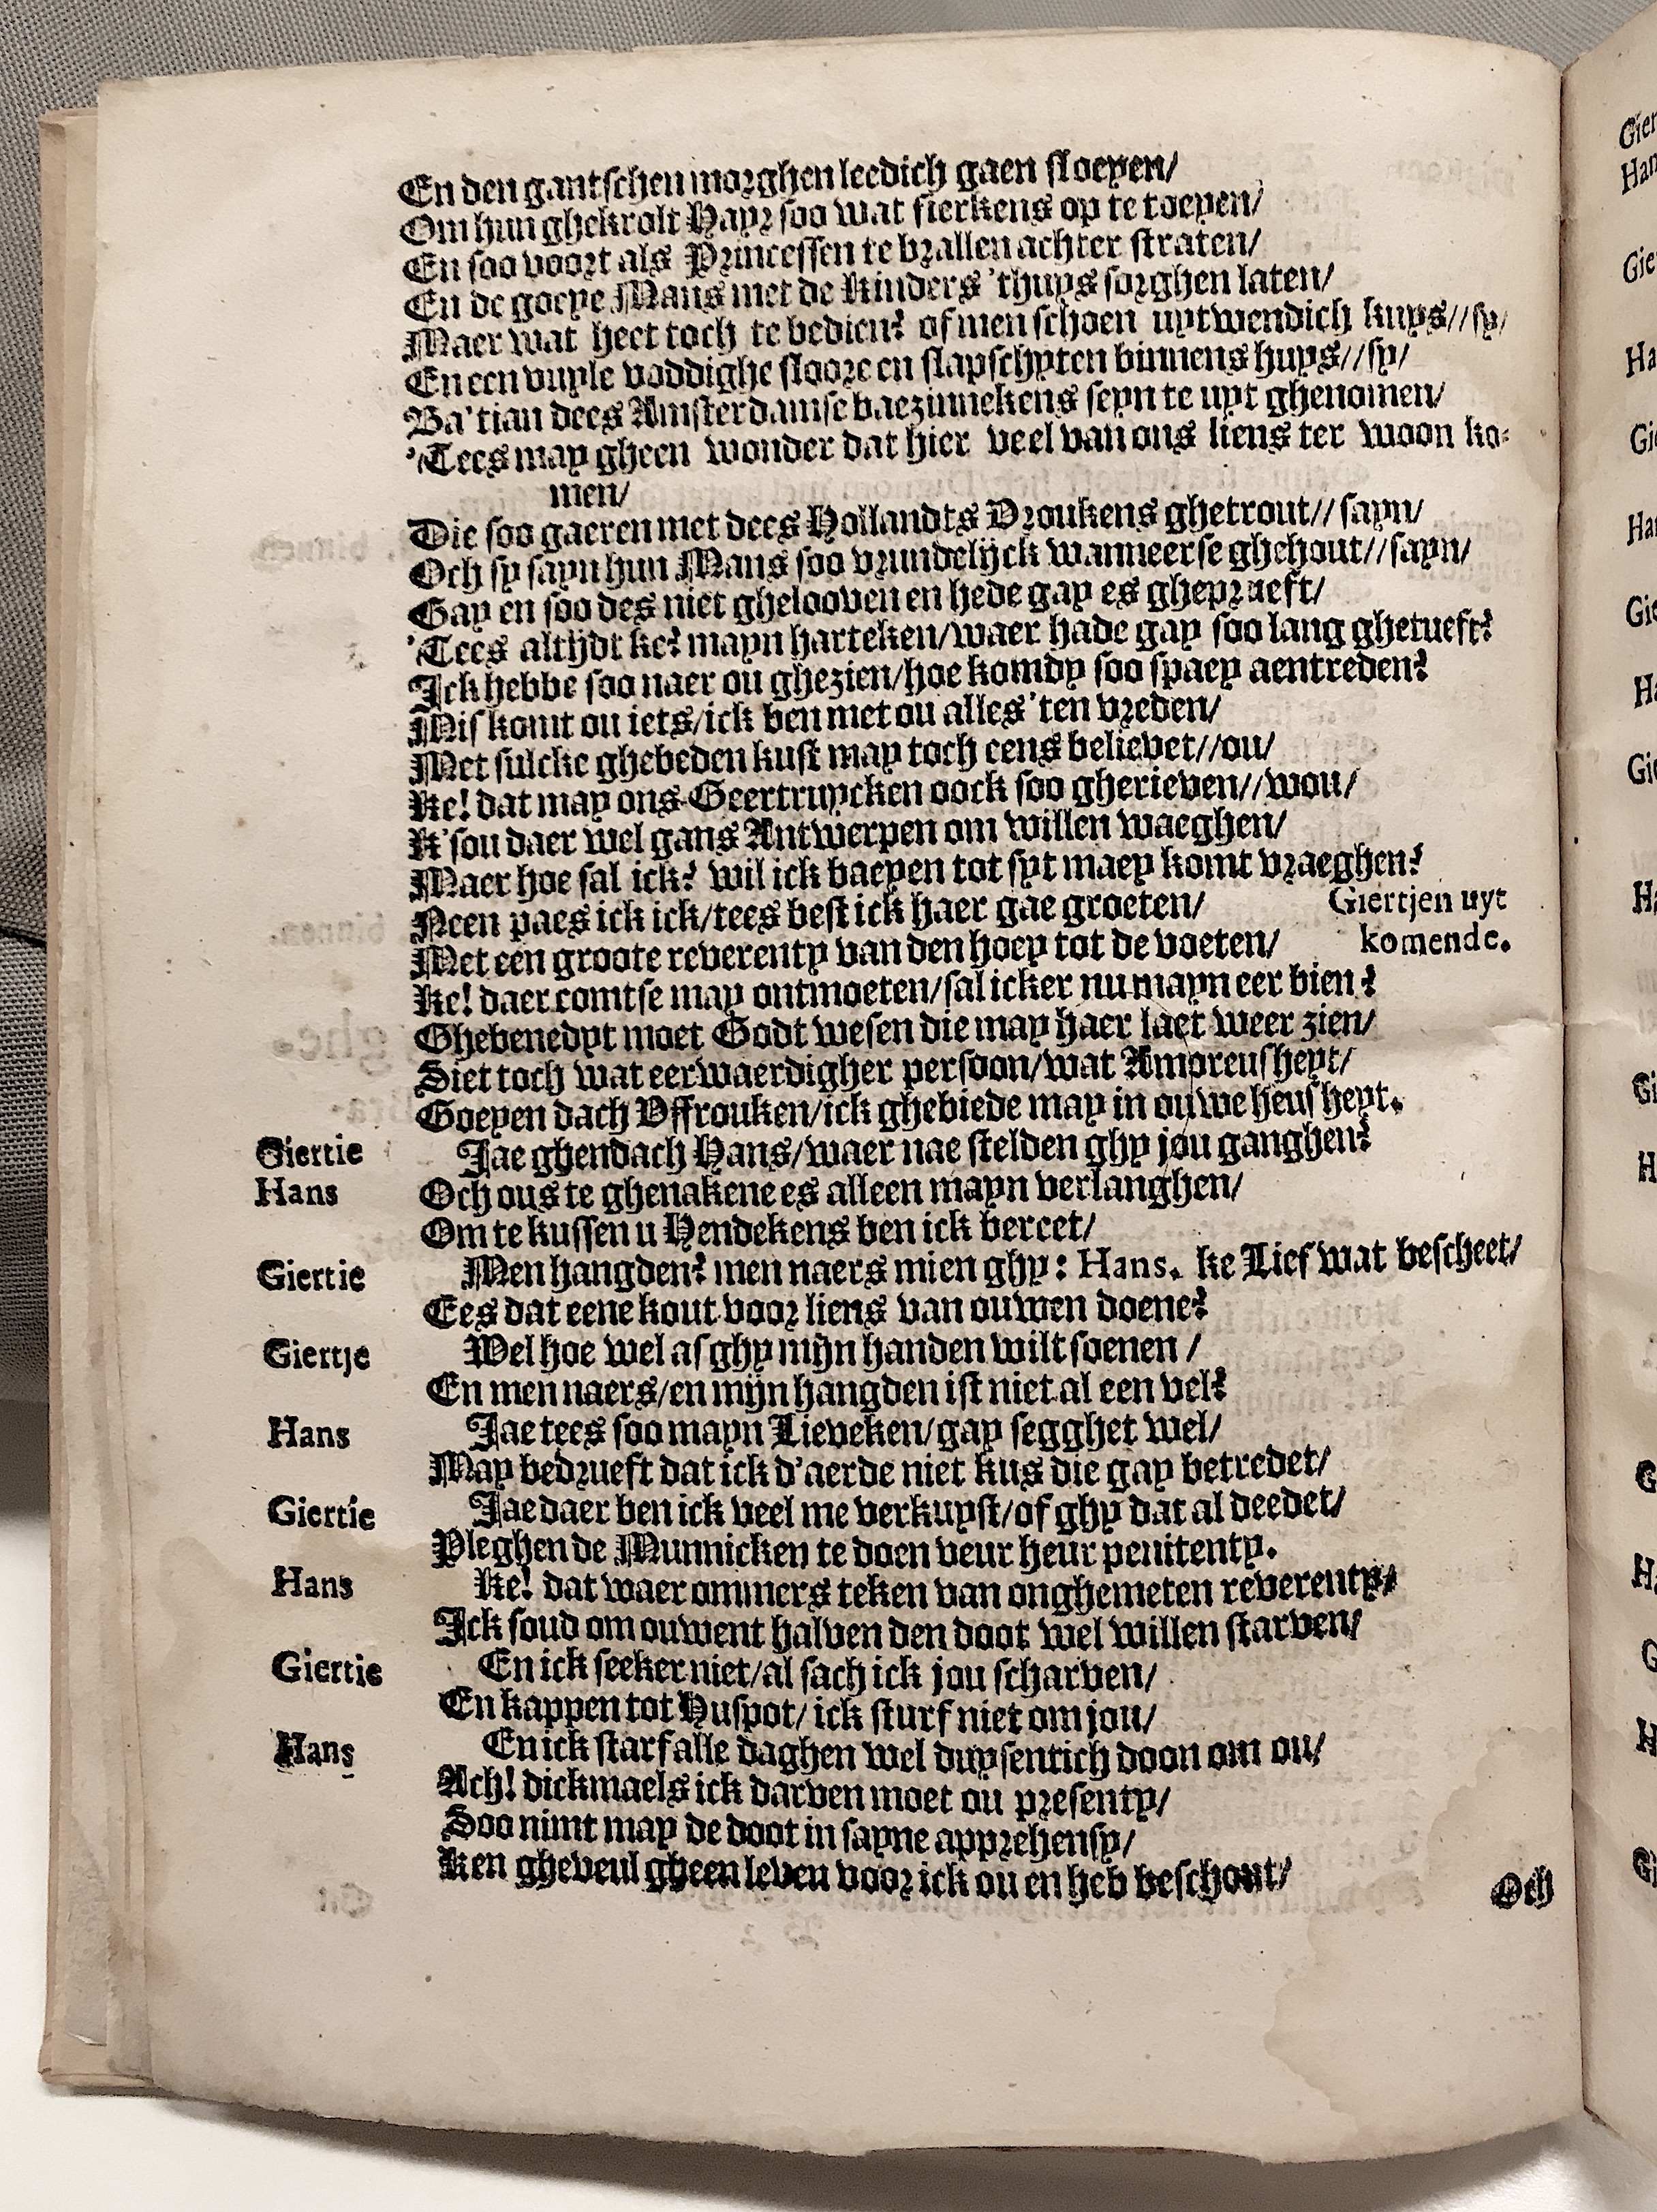 En den gantschen morghen leedich gaen sloeyen/
Om hun ghekrolt Hayr soo wat fierkens op te toeyen/
En soo voort als Princessen te brallen achter straten/
En de goeye Mans met de Kinders 'thuys sorghen laten/
Maer wat heet toch te bedien? of men schoen uytwendich kuys//sy/
En een vuyle voddighe sloore en slapschyten binnens huys//sy/
Ba'tian dees Amsterdamse baezinnekens seyn te uyt ghenomen/
'Tees may gheen wonder dat hier veel van ons liens ter woon ko-
men/
Die soo gaeren met dees Hollandts Vroukens ghetrout//sayn/
Och sy sayn hun Mans soo vrundelijck wanneer se ghehout//sayn/
Gay en soo des niet ghelooven en hede gay es ghepraeft/
'Tees altijdt ke? mayn harteken/waer hade gay soo lang ghetueft?
Ick hebbe soo naer ou ghezien/hoe komdy soo spaey aentreden?
Mis komt ou iets/ick ben met ou alles 'ten vreden/
Met sulcke ghebeden kust may toch eens believet//ou/
Ke! dat may ons Geertruycken oock soo gherieven//wou/
K'sou daer wel gans Antwerpen om willen waeghen/
Maer hoe sal ick? wil ick baeyen tot syt maey komt vraeghen?
Neen paes ick ick/tees best ick haer gae groeten/ Giertjen uyt
Met een groote reverenty van den hoey tot de voeten/ komende.
Ke! daer comtse may ontmoeten/sal icker nu mayn eer bien?
Ghebenedyt moet Godt wesen die may haer laet weer zien/
Siet toch wat eerwaerdigher persoon/wat Amoreusheyt/
Goeyen dach Vffrouken/ick ghebiede may in ouwe heusheyt.
Giertie Jae ghendach Hans/waer nae stelden ghy jou ganghen?
Hans Och ous te ghenakene es alleen mayn verlanghen/
Om te kussen u Hendekens ben ick bereet/
Giertie Men hangden? men naers mien ghy: Hans. ke Lief wat bescheet/
Ees dat eene kout voor liens van ouwen doene?
Giertje Wel hoe wel as ghy mijn handen wilt soenen /
En men naers/en mijn hangden ist niet al een vel?
Hans Jae tees soo mayn Lieveken/gay segghet wel/
May bedrueft dat ick d'aerde niet kus die gay betredet/
Giertie Jae daer ben ick veel me verkuyst/of ghy dat al deedet/
Pleghen de Munnicken te doen veur heur penitenty.
Hans Ke! dat waer ommers teken van onghemeten reverenty/
Ick soud om ouwent halven den doot wel willen starven/
Giertie En ick seeker niet/al sach ick jou scharven/
En kappen tot Huspot/ ick sturf niet om jou/
Hans En ick starf alle daghen wel duysentich doon om ou/
Ach! dickmaels ick darven moet ou presenty/
Soo nimt may de doot in sayne apprehensy/
Ken gheveul gheen leven voor ick ou en heb beschout/
Och